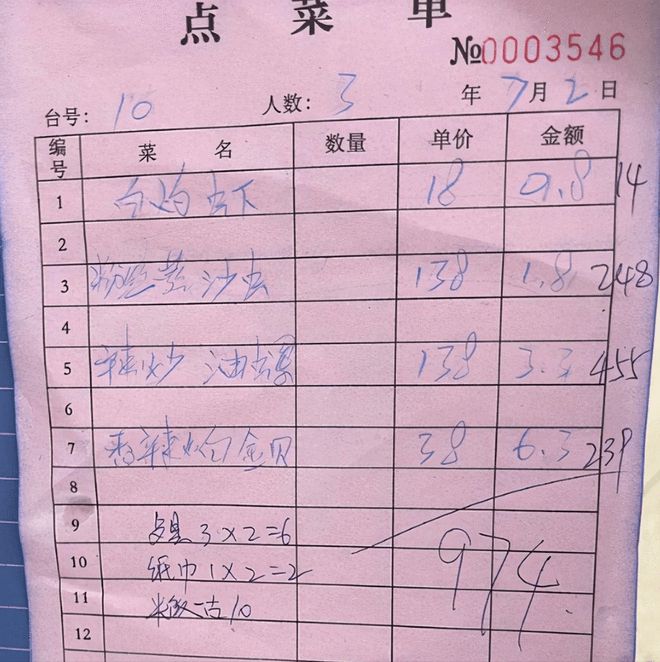 点菜单
№0003546
台号: 10 人数: 3 年 7 月 2 日
编号 菜名 数量 单价 金额
1 白灼虾 18 0.8 14
2
3 粉丝蒸沙虫 138 1.8 248
4
5 辣炒油螺 138 3.3 455
6
7 香辣炒白金贝 38 6.3 239
8
9 餐具 3×2=6
10 纸巾 1×2=2
11 米饭 10
12
974